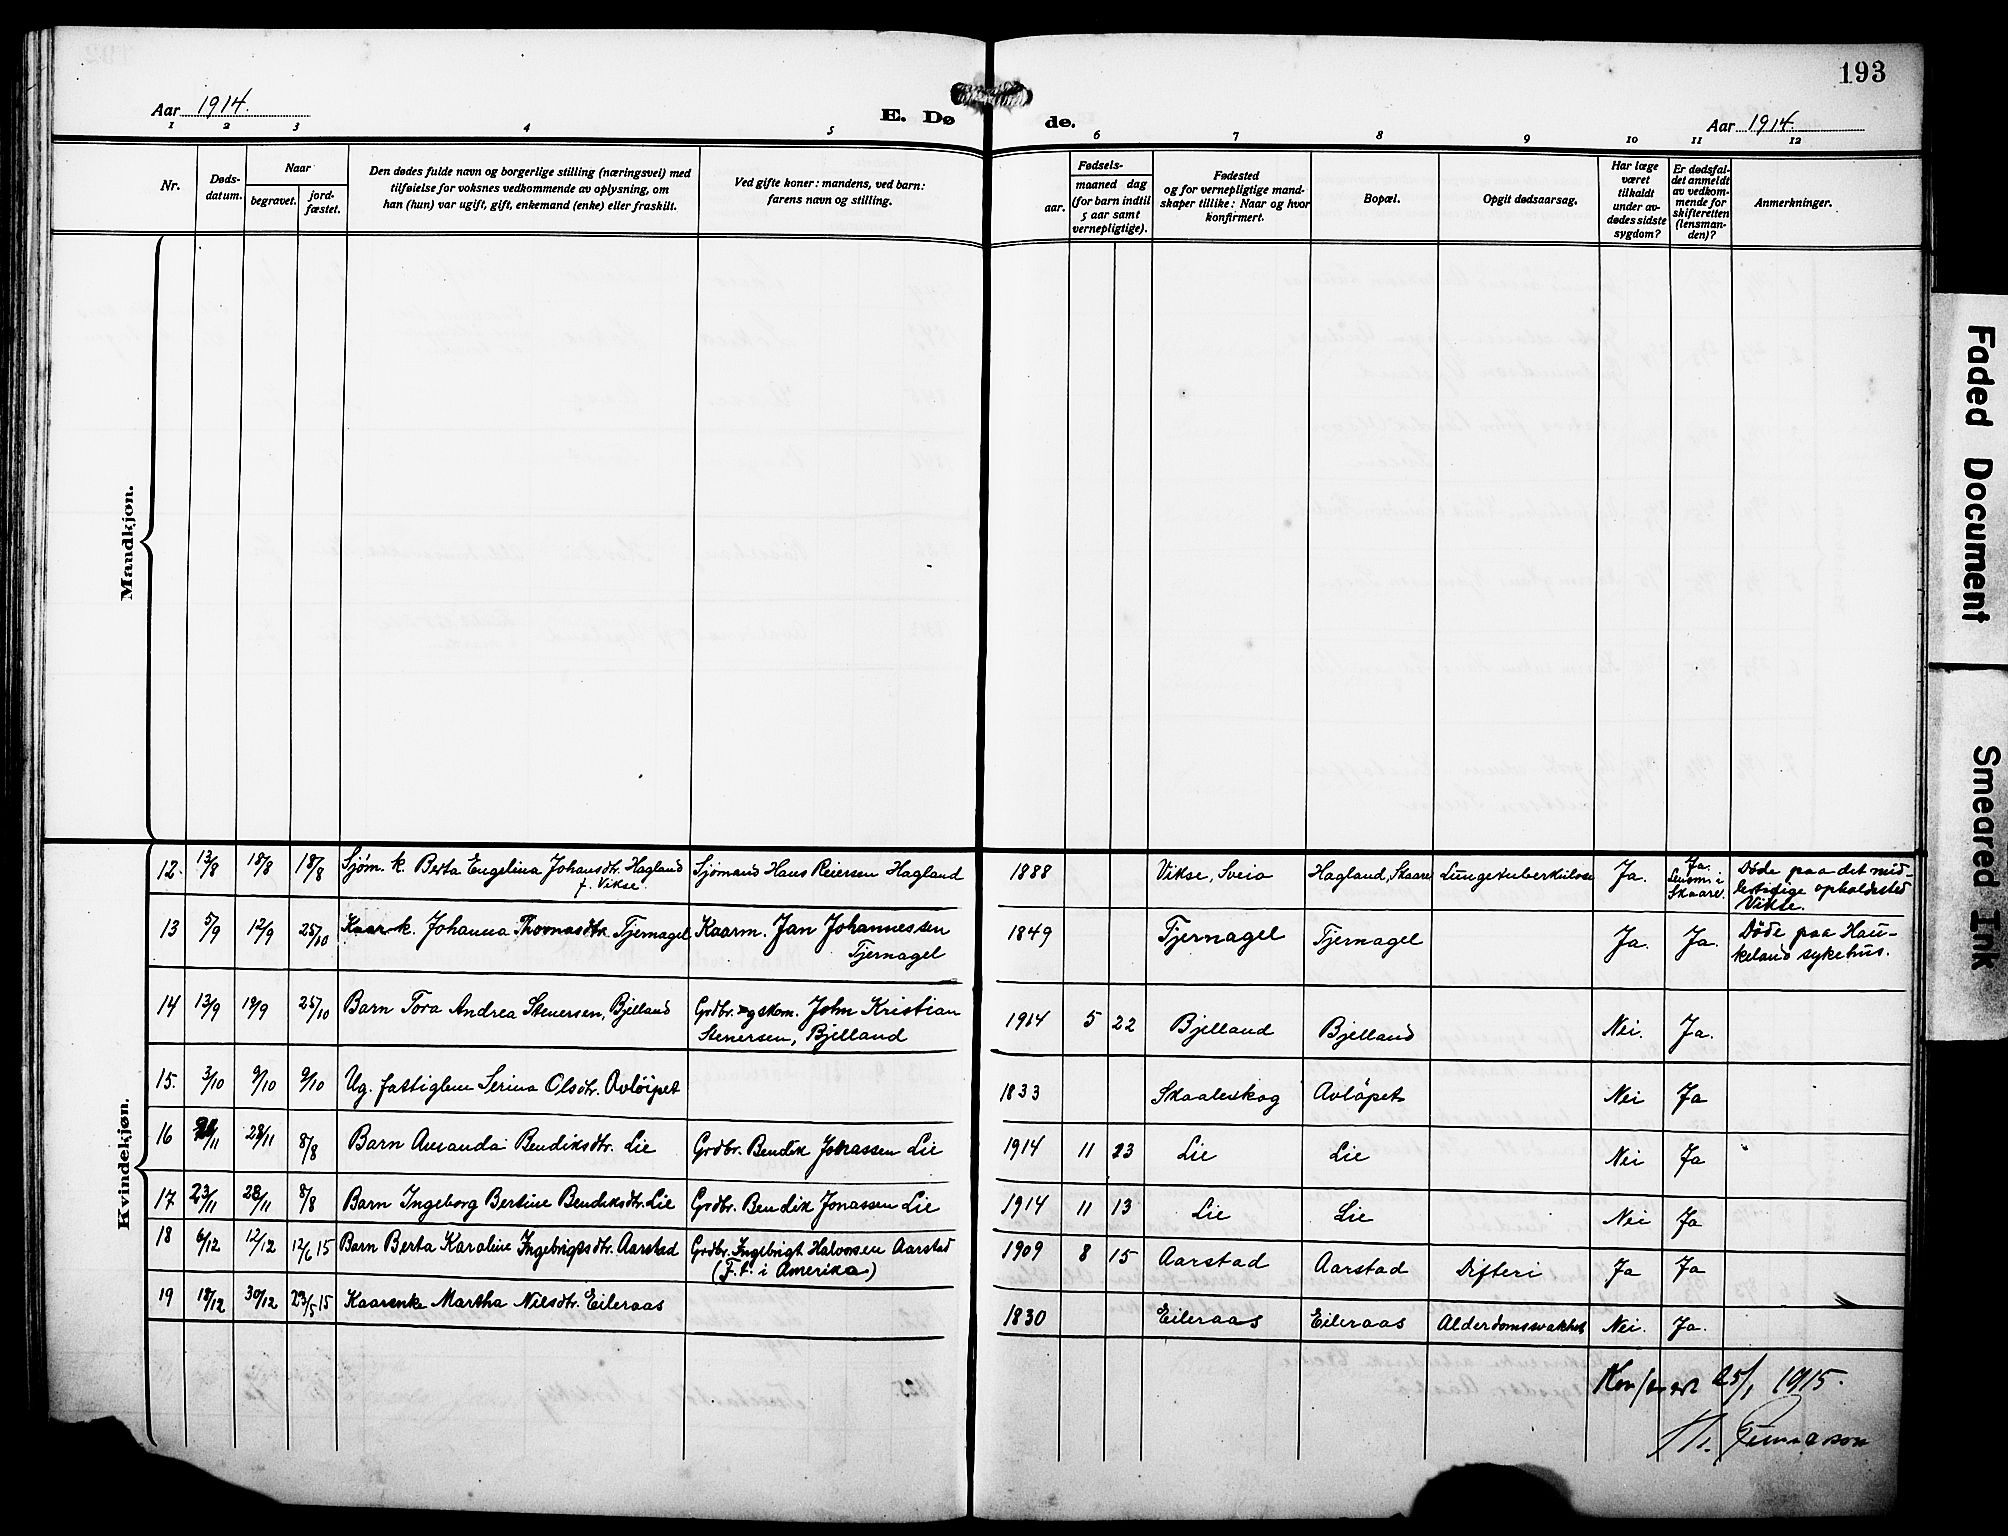 193
Aar 1914.
E. Dø
de.
Aar 1914.
1 2 3 4 5 6 7 8 9 10 11 12
Nr.
Døds-
datum.
Naar
begravet.
jord-
fæstet.
Den dødes fulde navn og borgerlige stilling (næringsvei) med
tilføielse for voksnes vedkommende av oplysning, om
han (hun) var ugift, gift, enkemand (enke) eller fraskilt.
Ved gifte koner: mandens, ved barn:
farens navn og stilling.
Fødsels-
aar.
maaned dag
(for barn indtil
5 aar samt
vernepligtige).
Fødested
og for vernepligtige mand-
skaper tillike: Naar og hvor
konfirmert.
Bopæl.
Opgit dødsaarsag.
Har læge
været
tilkaldt
under av-
dødes sidste
sygdom?
Er dødsfal-
det anmeldt
av vedkom-
mende for
skifteretten
(lensman-
den)?
Anmerkninger.
Mandkjøn.
Kvindekjøn.
12. 13/8 18/8 18/8 Sjøm. k. Berta Engelina Johansdtr. Hagland
f. Vikse.
Sjømand Hans Reiersen Hagland 1888 Vikse, Sveio Hagland, Skaare Lungetuberkulose Ja.
Ja.
Lensm. i
Skaare.
Døde paa det mid-
lertidige opholdssted
Vikse.
13 5/9 12/9 25/10 Kaar k. Johanna Thomasdtr. Tjernagel Kaarm. Jan Johannessen
Tjernagel
1849 Tjernagel Tjernagel Ja. Ja.
Døde paa Hau-
keland sykehus.
14 13/9 19/9 25/10 Barn Tora Andrea Stenersen, Bjelland Grdbr. og skom. John Kristian
Stenersen, Bjelland
1914 5 22 Bjelland Bjelland Nei. Ja.
15. 3/10 9/10 9/10 Ug. fattiglem Serina Olsdtr. Avlöipet 1833 Skaaleskog Avlöpet Nei Ja
16 28/11 8/8 Barn Amanda Bendiksdtr. Lie Grdbr. Bendik Johassen Lie 1914 11 23 Lie Lie Nei Ja
17 23/11 28/11 8/8 Barn Ingeborg Bertine Bendiksdtr. Lie Grdbr. Bendik Jonassen Lie 1914 11 13 Lie Lie Nei Ja
18 6/12 12/12 12/6 15 Barn Berta Karoline Ingebrigtsdtr. Aarstad Grdbr. Ingebrigt Halvorsen Aarstad
(F. t. i Amerika)
1909 8 15 Aarstad Aarstad Difteri Ja Ja
19 18/12 30/12 23/5 15 Kaarenke Martha Nilsdtr. Eileraas 1830 Eileraas Eileraas Alderdomssvakhet Nei. Ja.
Konferert 25/1 1915.
Faded Document
Smeared Ink